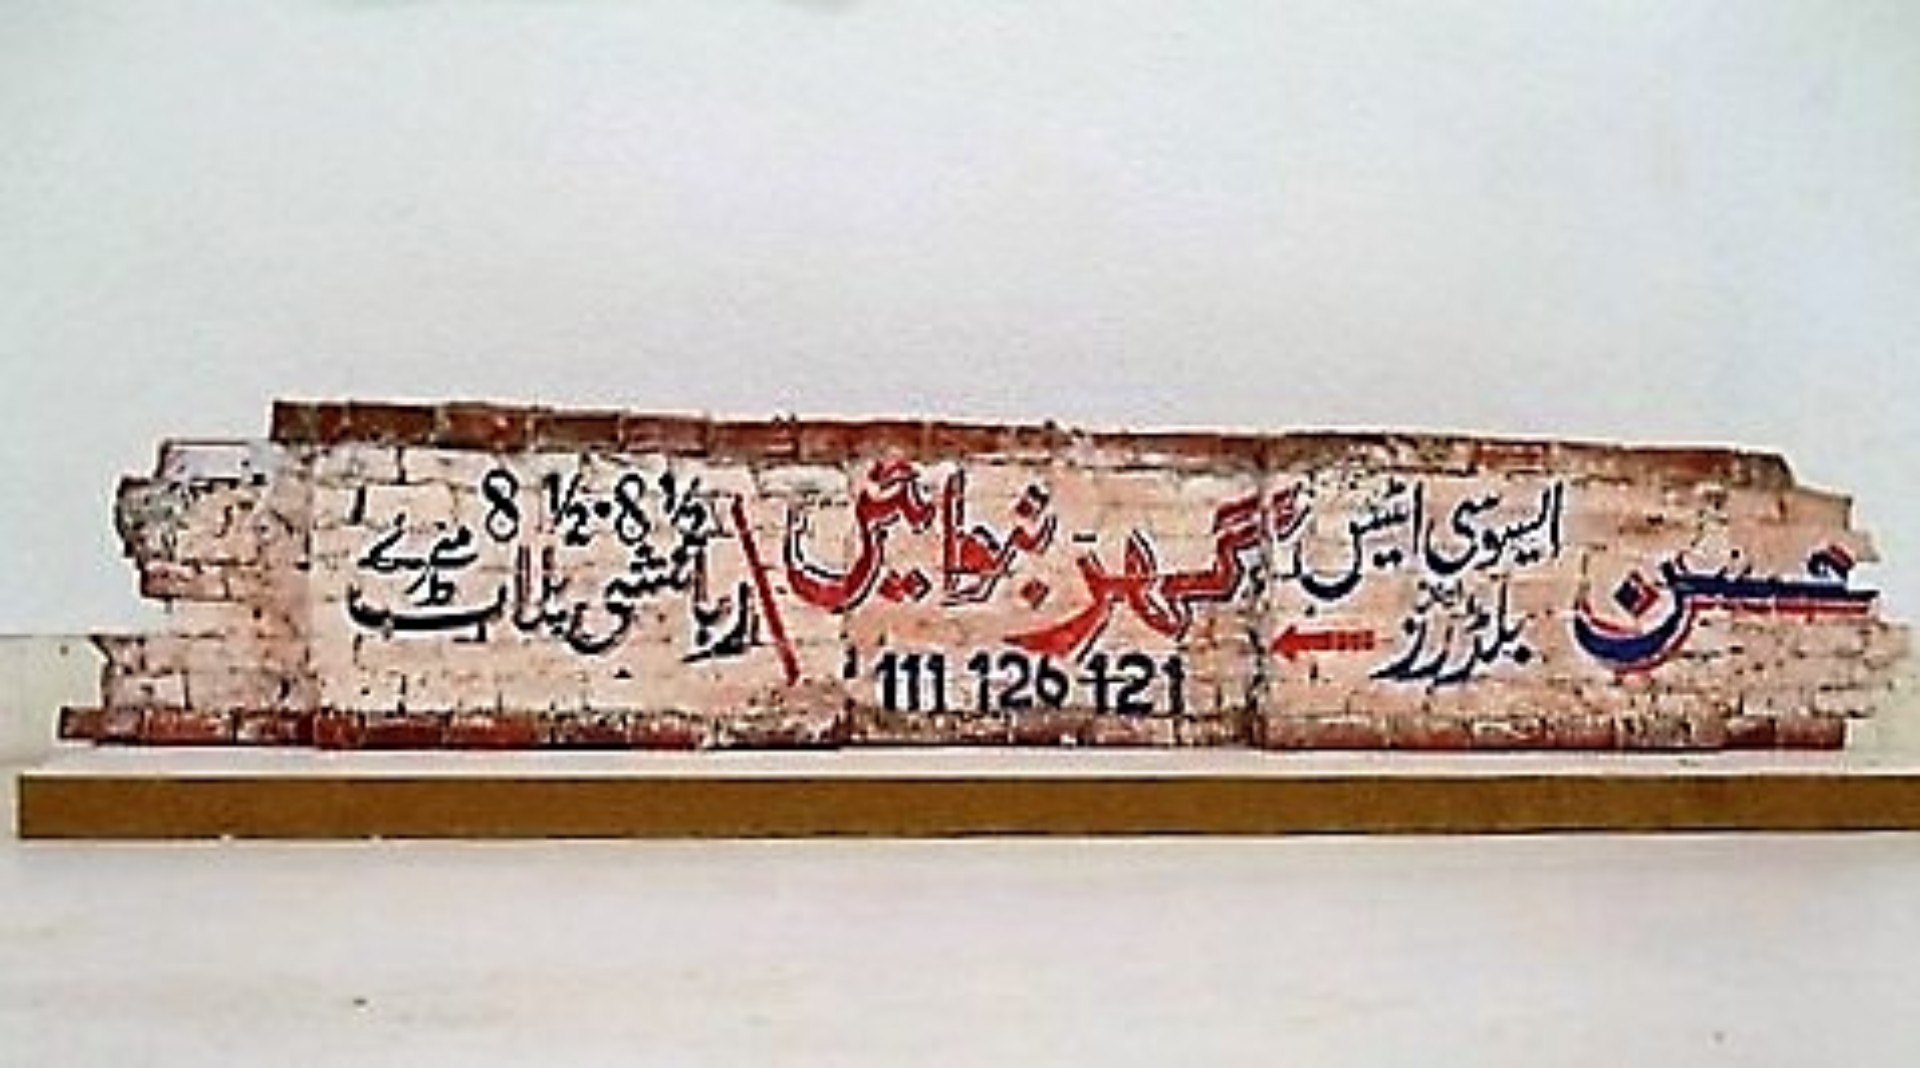 حسن
ایسوسی ایٹس
اینڈ
بلڈرز
گھر بنوائیں
111 126 121
8 ½ · 8 ½
رہائشی پلاٹ